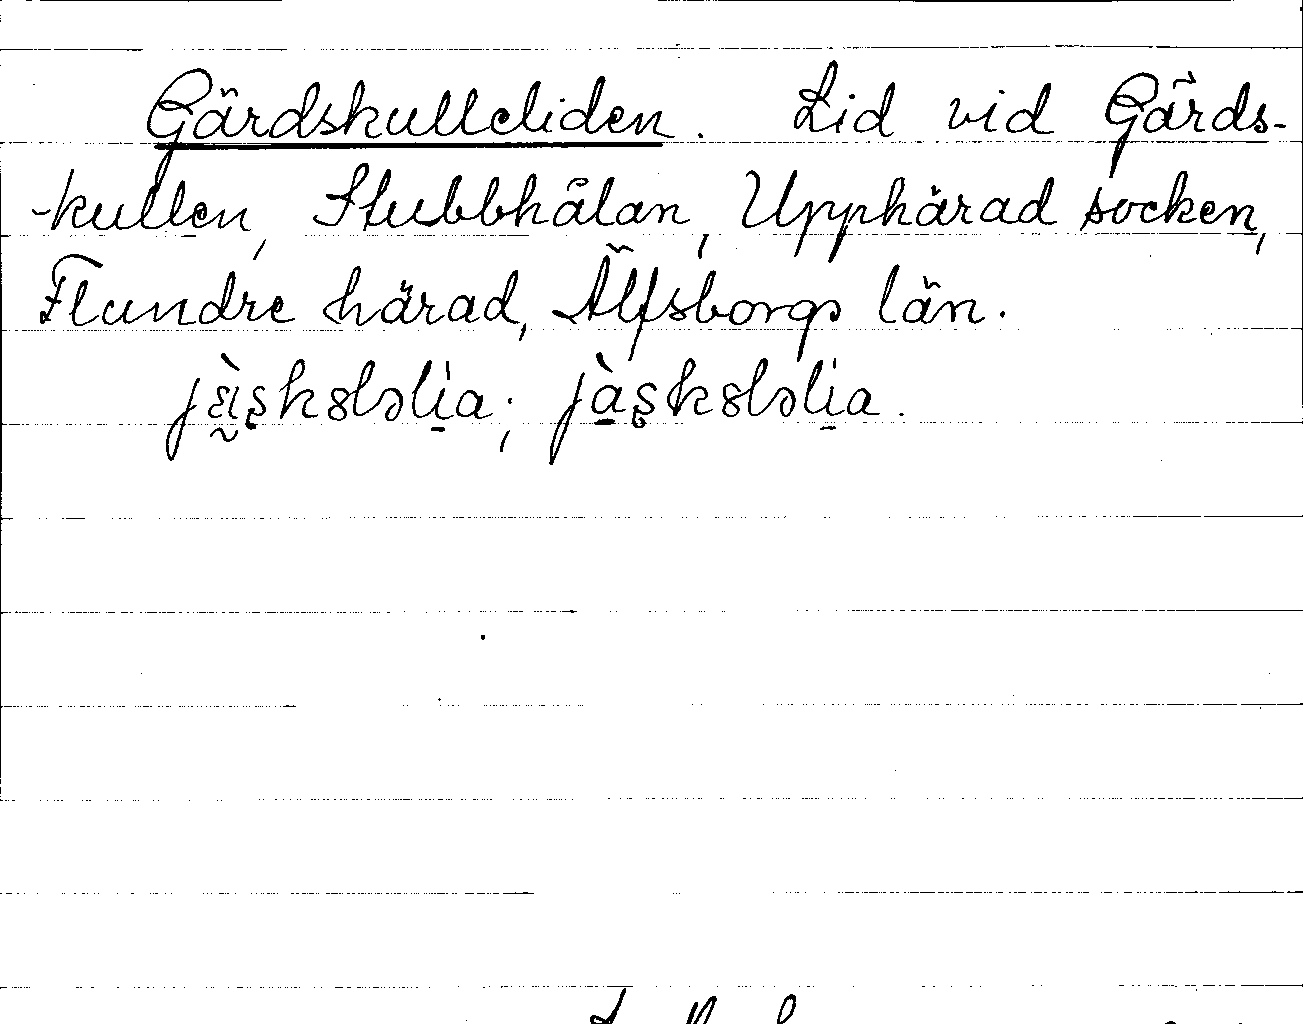 Gärdskulleliden. Lid vid Gärds-
-kullen, Stubbhålan, Upphärad socken,
Flundre härad, Älfsborgs län.
jä̀ʂkꝋləli̱a; jà̱ʂkꝋləli̱a.